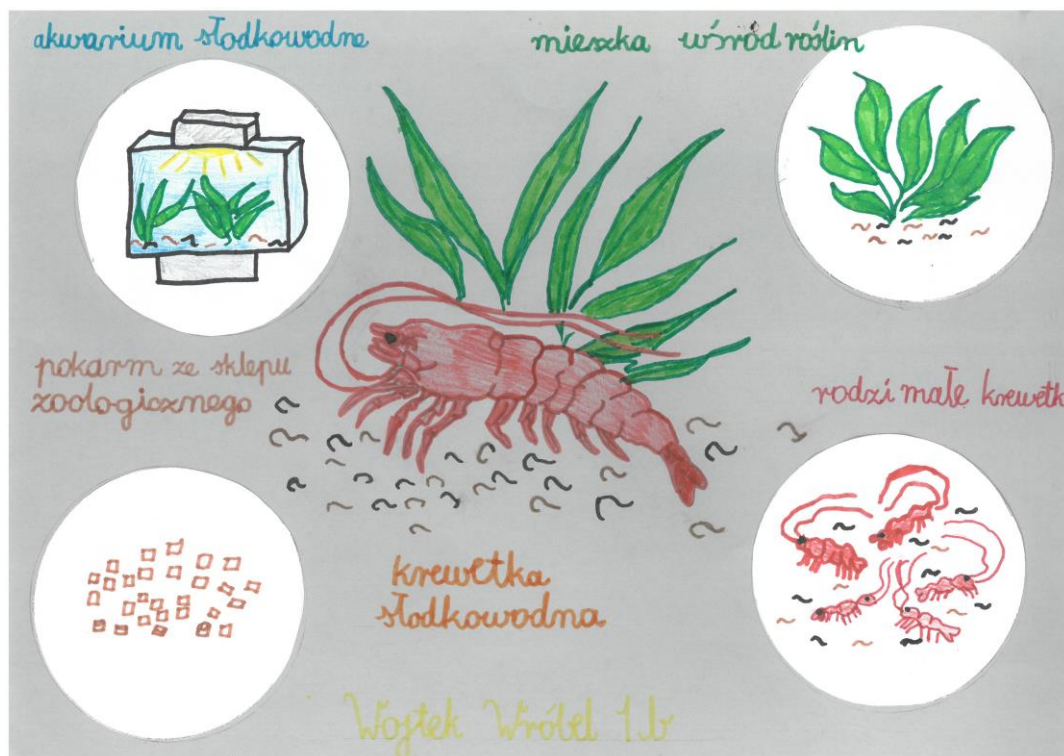 akwarium słodkowodne
mieszka wśród roślin
pokarm ze sklepu
zoologicznego
rodzi małe krewetk
krewetka
słodkowodna
Wojtek Wróbel 1.b